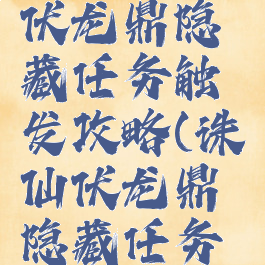 伏龙鼎隐
藏任务触
发攻略(诛
仙伏龙鼎
隐藏任务